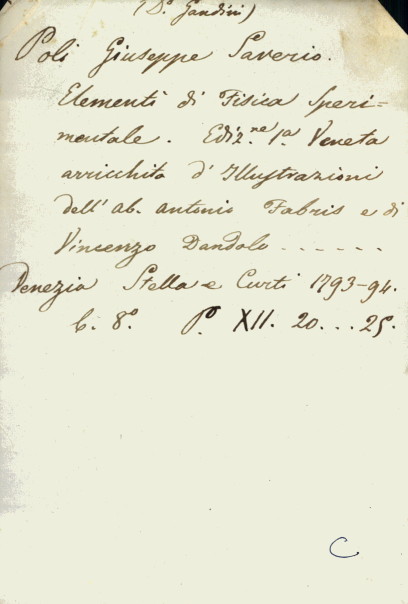 (D.r Gandini)
Poli Giuseppe Saverio.
Elementi di Fisica Speri=
mentale. Ediz.ne 1.a Veneta
arricchita d'Illustrazioni
dell'ab. antonio Fabris e di
Vincenzo Dandolo ------
Venezia Stella e Curti 1793-94.
6. 8.o P.o XII. 20...25.
C